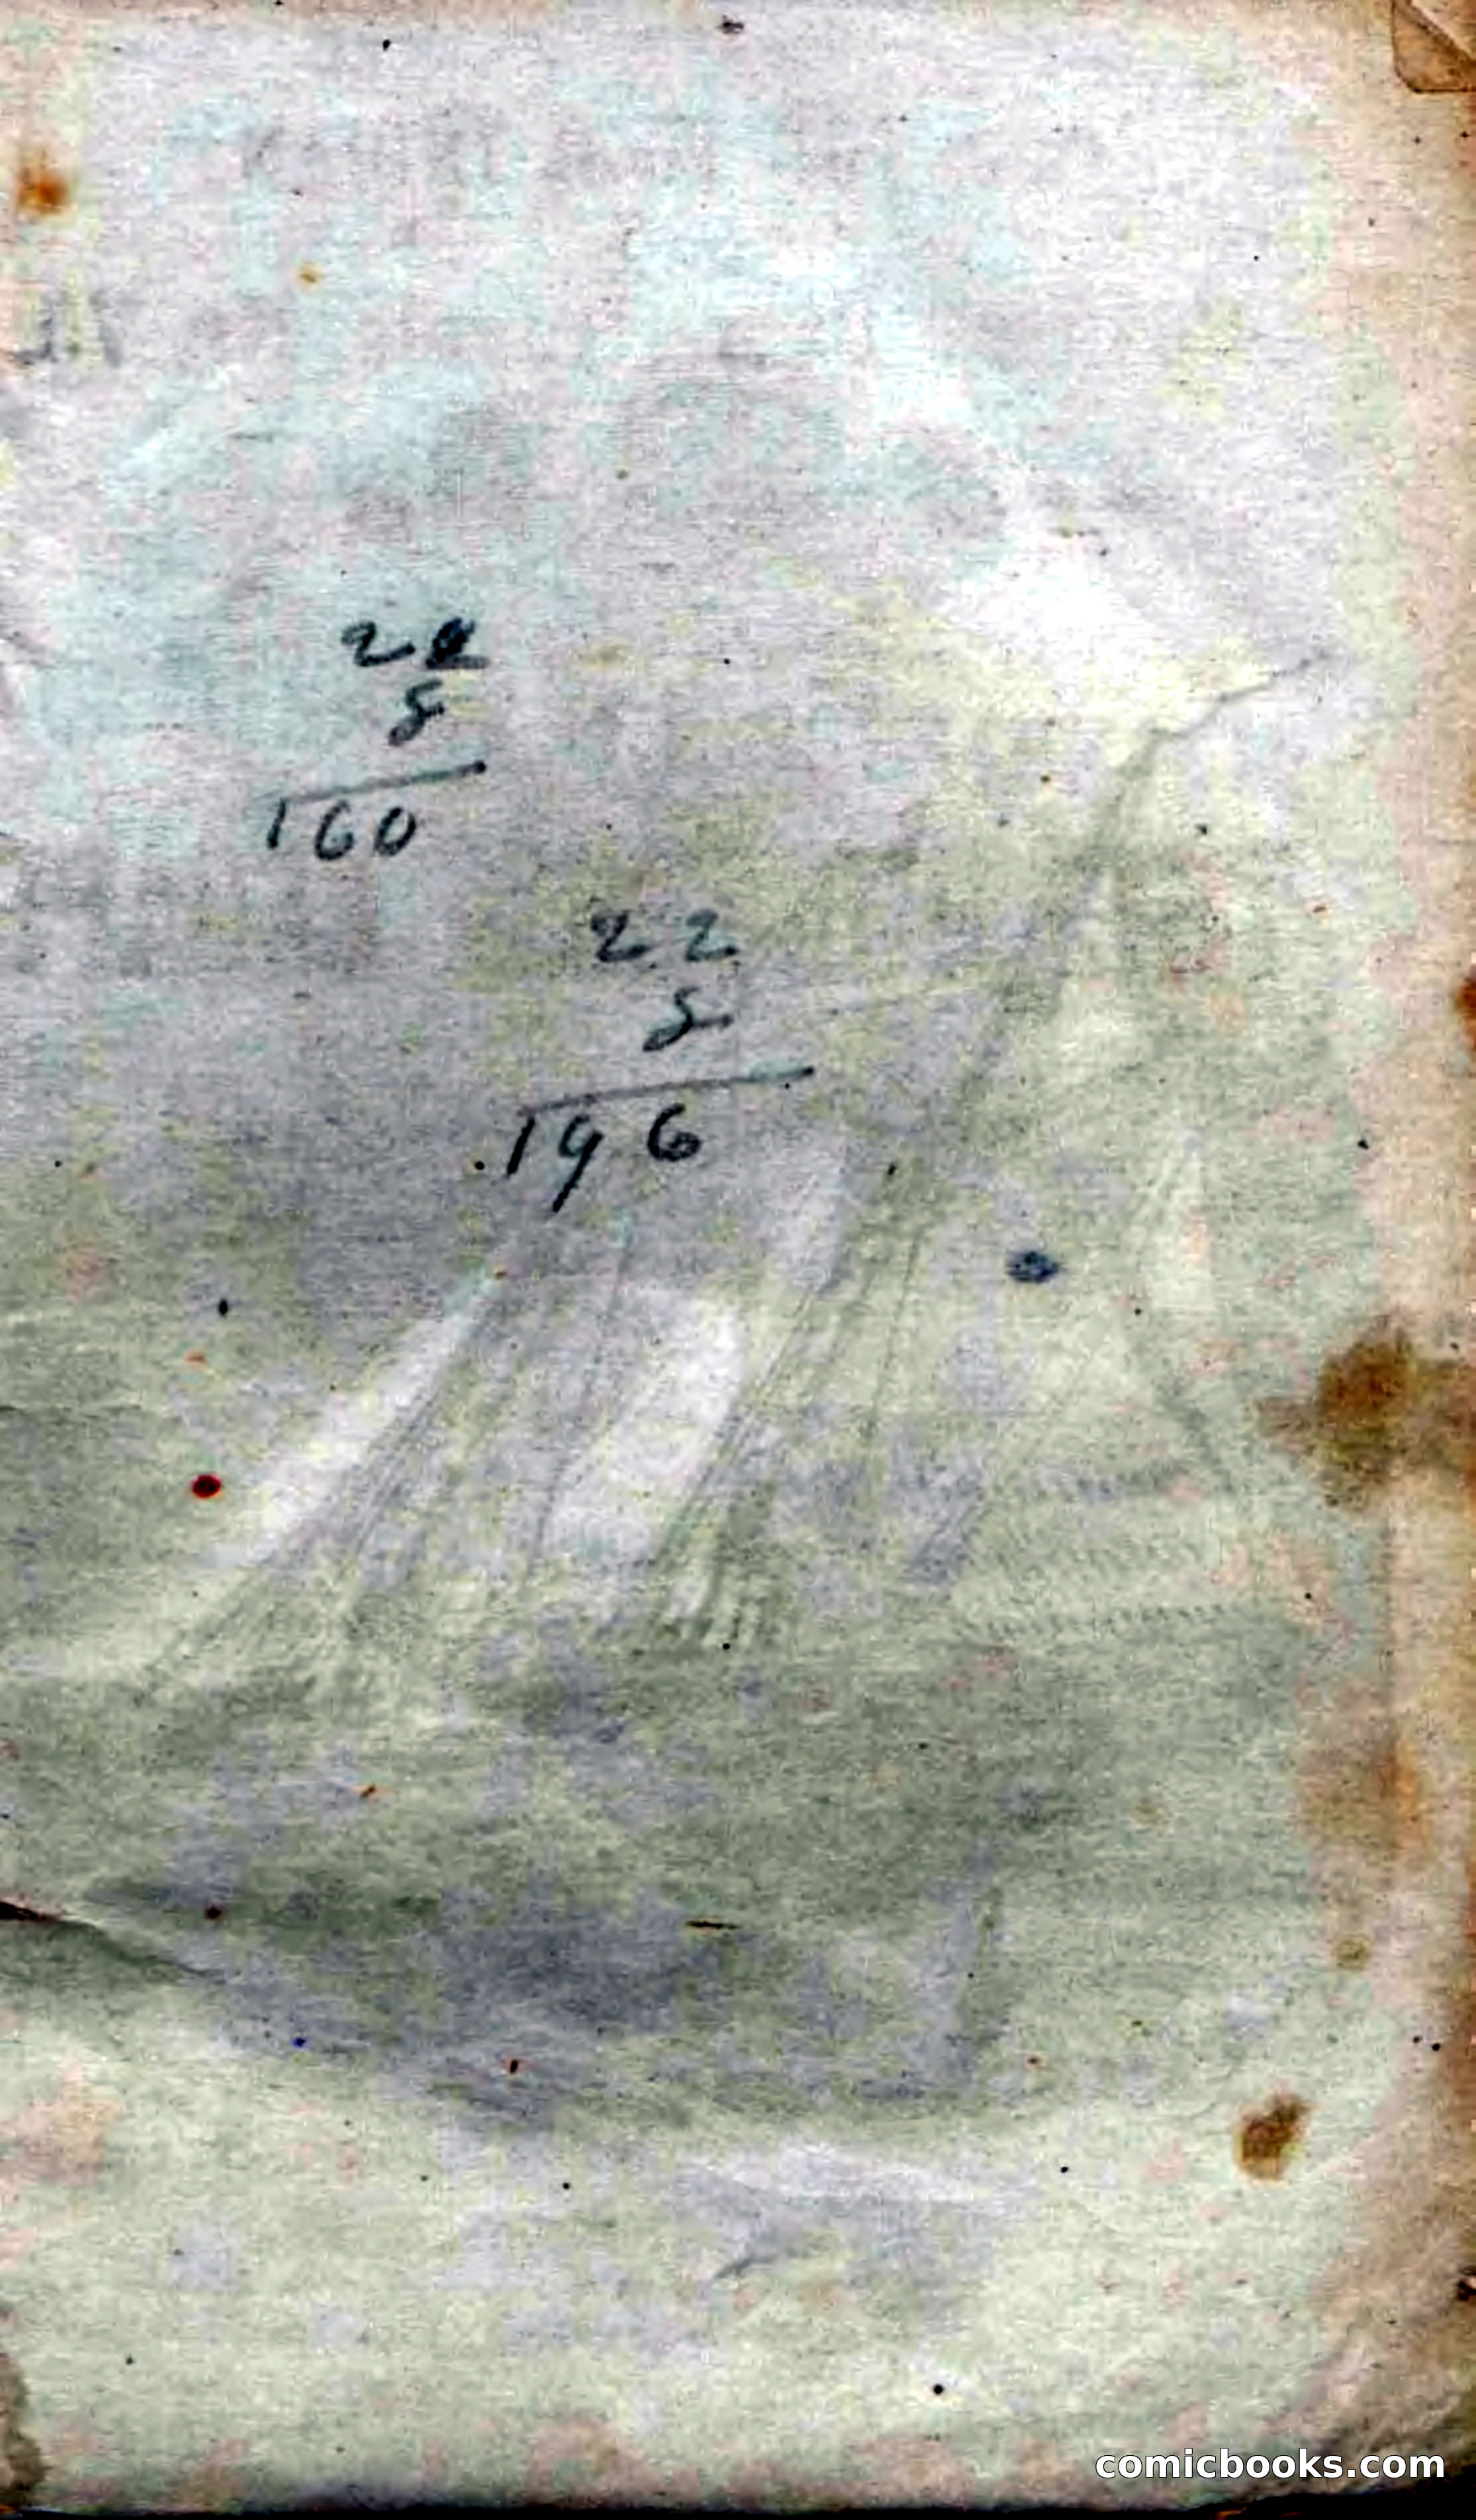 22
8
160
22
8
196
comicbooks.com